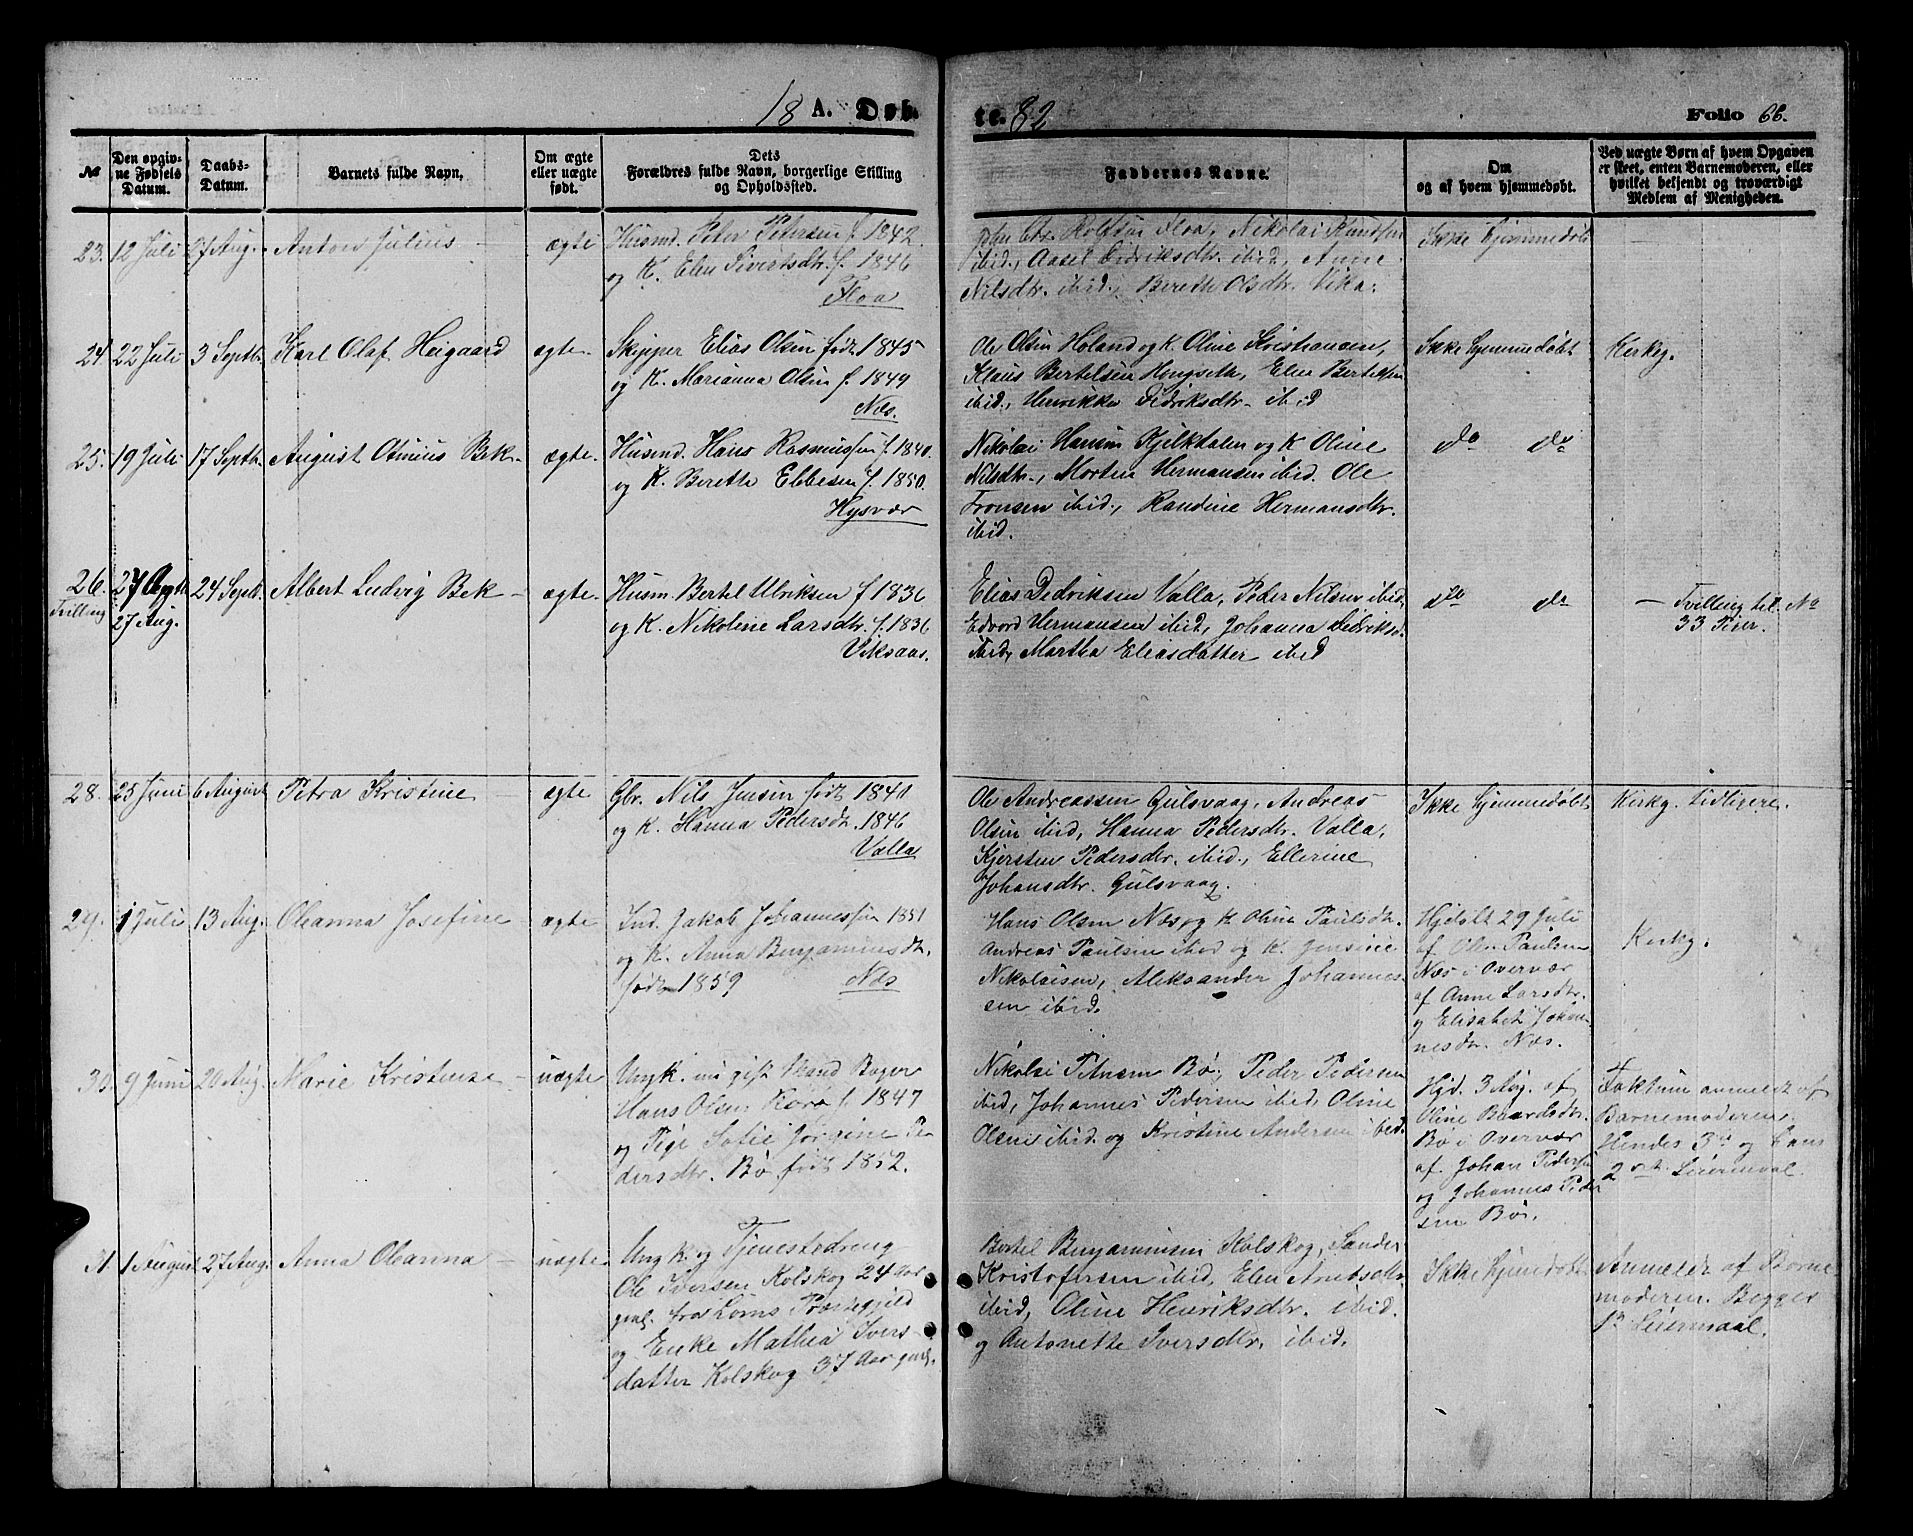 18 A. Døb-
te. 82
Folio 66.
№
Den opgiv-
ne Fødsels
Datum.
Daabs-
Datum.
Barnets fulde Navn.
Om ægte
eller uægte
født.
Dets
Forældres fulde Navn, borgerlige Stilling
og Opholdssted.
Faddernes Navne.
Om
og af hvem hjemmedøbt.
Ved uægte Børn af hvem Opgaven
er skeet, enten Barnemoderen, eller
hvilket bekjendt og troværdigt
Medlem af Menigheden.
23. 12 Juli 27 Aug. Anton Julius - ægte
Husmd. Peter Petersen f. 1842
og K. Elen Sivertsdtr. f. 1846
Floa
Chr. Rolfsen Floa, Nikolai Knudsen
ibid., Aasel Didriksdtr. ibid, Anne
Nilsdtr. ibid., Bereth Olsdtr. Vika.
Ikke hjemmedøbt
24. 22 Juli 3 Septb. Karl Olaf Heigaard ægte
Skipper Elias Olsen født 1845
og K. Marianna Olsen f. 1849
Næs.
Ole Olsen Holand og K. Oline Kristiansen,
Klaus Bertelsen Hongseth, Elen Bertelsen
ibid., Henrikke Didriksdtr. ibid
Ikke hjemmedøbt
Kirkg.
25. 19 Juli 17 Septb. August Otinius Bek - ægte.
Husmd. Hans Rasmussen f. 1840.
og K. Berette Ebbesen f. 1850.
Hysvær
Nikolai Hansen Kjilkdalen og K Oline
Nilsdtr., Morten Hermansen ibid. Ole
Tronsen ibid., Randine Hermansdtr.
ibid.
do do
26. Tvilling
27 Aug. 24 Septb. Albert Ludvig Bek - ægte.
Husm. Bertel Ulriksen f 1836
og K. Nikoline Larsdtr. f. 1836
Viksaas.
Elias Didriksen Valla, Peder Nilsen ibid,
Edvard Hermansen ibid, Johanna Didriksd.
ibid, Martha Eliasdatter ibid
do do
- Tvilling til No
33 Peder.
28. 25 Juni 6 August Petra Kristine - ægte
Gbr. Nils Jensen født 1841
og K. Hanna Pedersdt. 1846
Valla
Ole Andreassen Gulsvaag, Andreas
Olsen ibid, Hanna Pedersdtr. Valla,
Kjersten Pedersdtr. ibid., Ellerine
Johansdtr. Gulsvaag.
Ikke hjemmedøbt
Kirkg. tidligere.
29. 1 Juli 13 Aug. Oleanna Josefine - ægte
Ind. Jakob Johannessen 1851
og K. Anna Benjaminsdt.
født 1859 Næs
Hans Olsen Næs og K Oline Paulsdt.
Andreas Paulsen ibid og K. Jensine
Nikolaisen, Aleksander Johannes-
sen ibid.
Hjdøbt 29 Juli
af Olen Paulsen
Næs i Overvær
af Anne Larsdtr.
og Elisabet Johan-
nesdtr. Næs.
Kirkg.
30. 9 Juni 20 Aug. Marie Kristense - uægte
Ungk. nu gift Mand Bager
Hans Olsen f. 1847
og Pige Sofie Jørgine Pe-
dersdtr. Bø født 1852.
Nikolai Petersen Bø, Peder Pedersen
ibid, Johannes Pedersen ibid, Oline
Olsen ibid. og Kristine Andersen ibid.
Hjd. 3 Aug. af
Oline Baardsdtr.
Bø i Overvær
af Johan Pedersen
og Johannes Peder
sen Bø.
Faktum anmeldt af
Barnemoderen.
Hendes 3die og hans
2det Leiermaal.
31. 1 August 27 Aug. Anna Oleanna - uægte
Ungk. og Tjenestedreng
Ole Iversen Kolskog 24 Aar
gml. fra Loms Præstegjeld
og Enke Mathea Ivers-
datter Kolskog 37 Aar gml.
Bertel Benjaminsen Kolskog, Sander
Kristofersen ibid, Elen Arntsdtr.
ibid, Oline Henriksdtr. ibid.
og Antonette Iversdtr. ibid.
Ikke hjemmedøbt
Anmeldt af Barne
moderen. Begges
1ste Leiermaal.